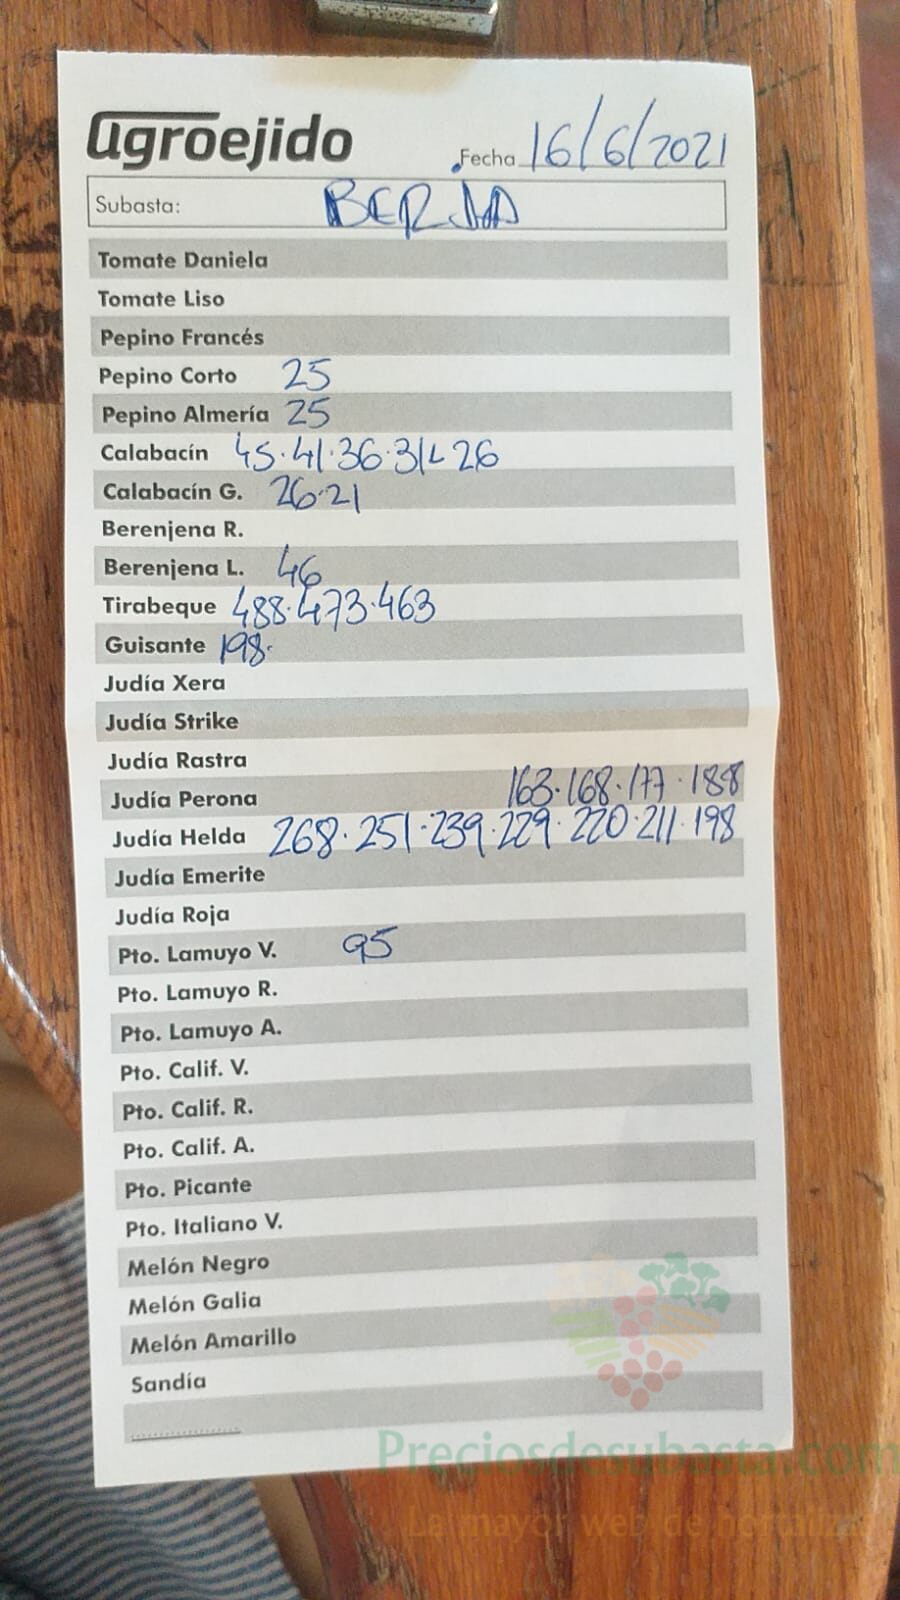 agroejido
Fecha 16/6/2021
Subasta: BERJA
Tomate Daniela
Tomate Liso
Pepino Francés
Pepino Corto 25
Pepino Almería 25
Calabacín 45.41.36.31L26
Calabacín G. 26.21
Berenjena R.
Berenjena L. 46
Tirabeque 488.473.463
Guisante 198.
Judía Xera
Judía Strike
Judía Rastra
163.168.177.188
Judía Perona
Judía Helda 268.251.239.229.220.211.198
Judía Emerite
Judía Roja
Pto. Lamuyo V. 95
Pto. Lamuyo R.
Pto. Lamuyo A.
Pto. Calif. V.
Pto. Calif. R.
Pto. Calif. A.
Pto. Picante
Pto. Italiano V.
Melón Negro
Melón Galia
Melón Amarillo
Sandía
Preciosdesubasta.com
La mayor web de hortaliz